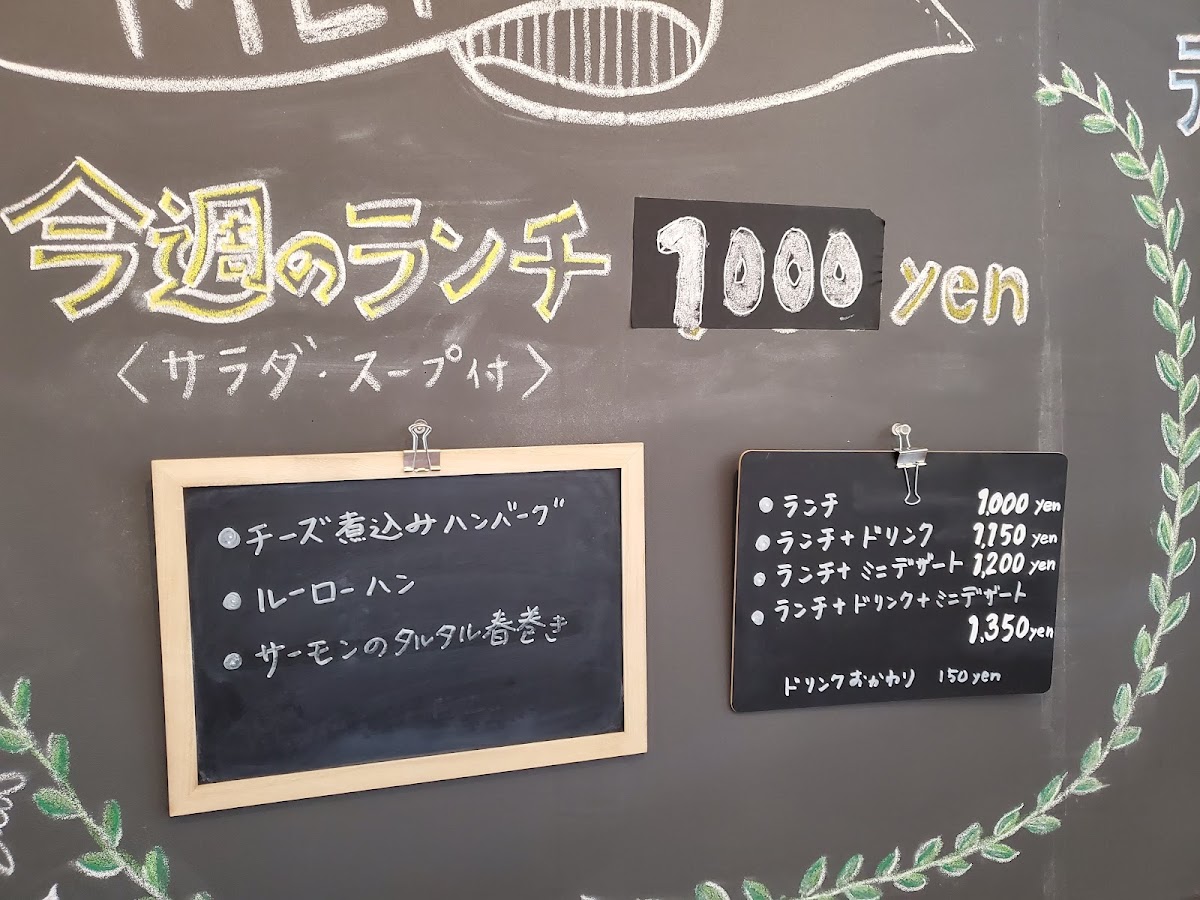 今週のランチ 1000 yen
〈サラダ・スープ付〉
● チーズ煮込みハンバーグ
● ルーローハン
● サーモンのタルタル春巻き
● ランチ 1,000 yen
● ランチ+ドリンク 1,150 yen
● ランチ+ミニデザート 1,200 yen
● ランチ+ドリンク+ミニデザート
1,350 yen
ドリンクおかわり 150 yen